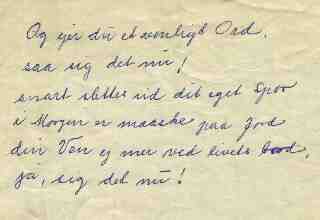 Og ejer du et venligt Ord,
saa sig det nu!
snart slettes ud dit eget Spor
i Morgen er maaske paa Jord
din Ven ej mer ved livets bord,
ja, sig det nu!